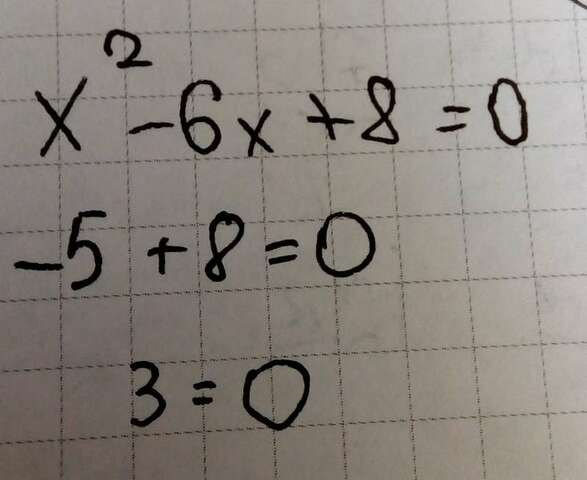 x² - 6x + 8 = 0
-5 + 8 = 0
3 = 0